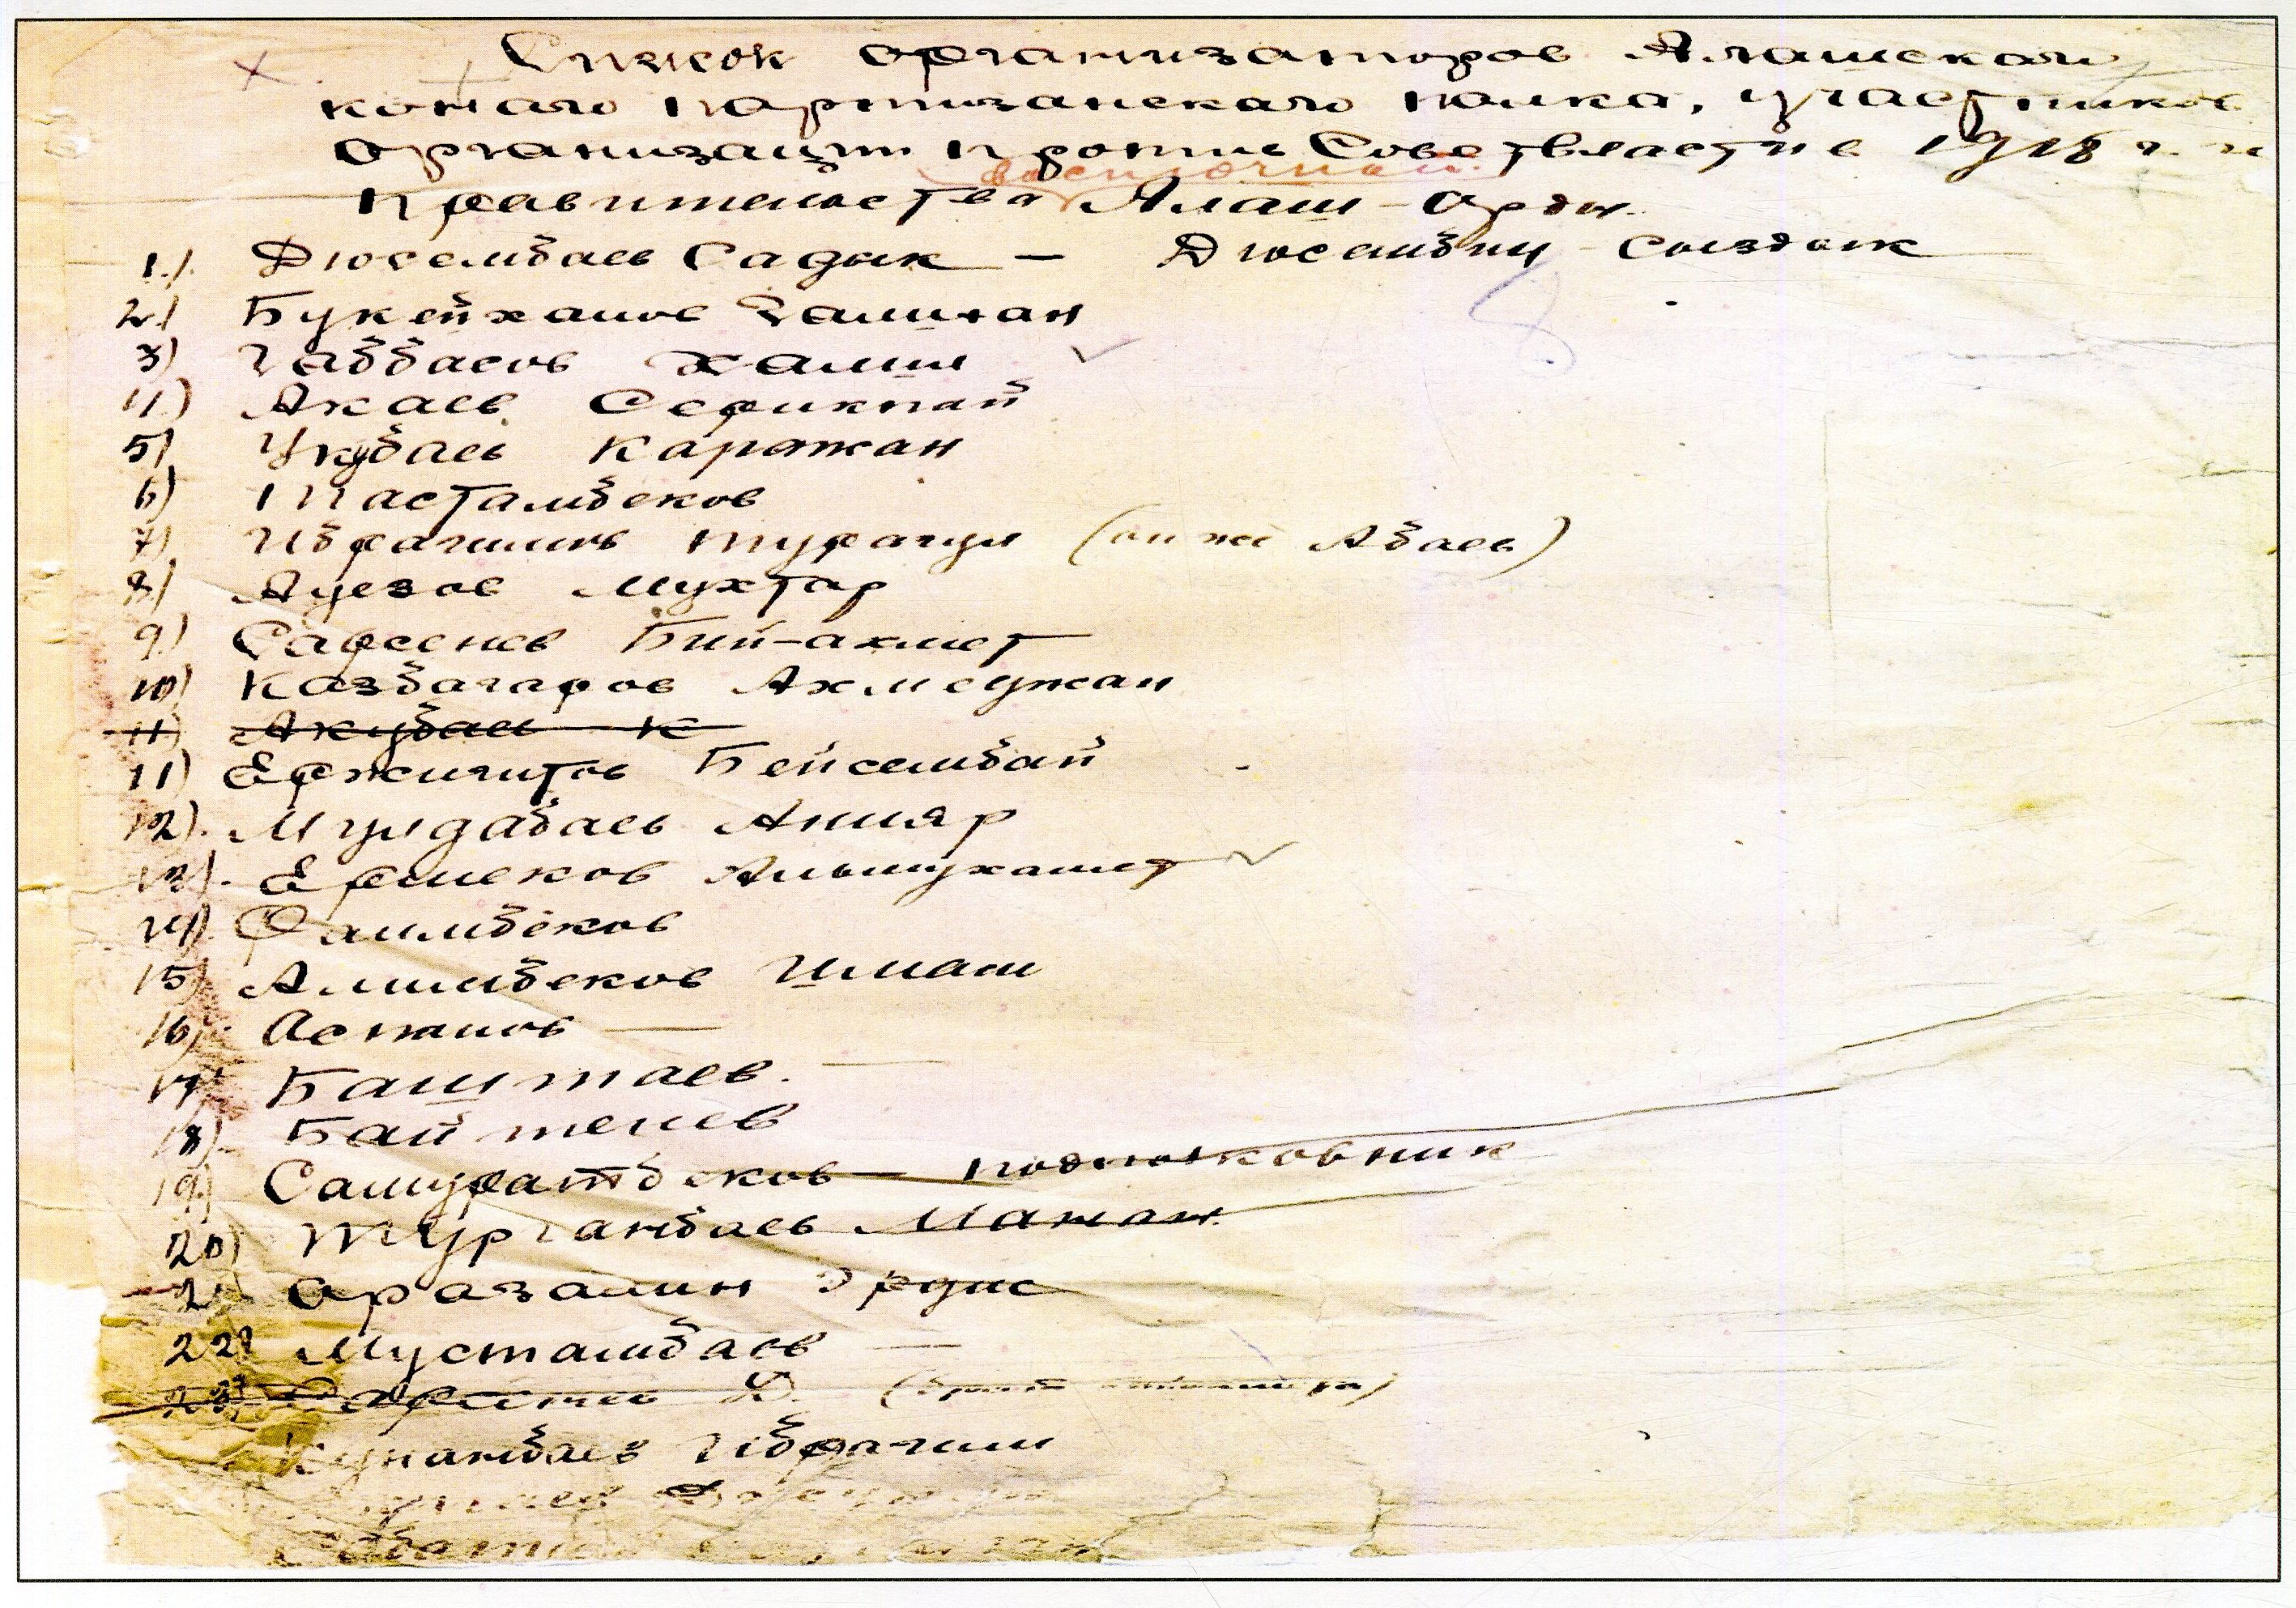 Список организаторов Алашскаго
коннаго партизанскаго полка, участников
организации против Советвласти в 1918 г. и
восточной
правительства Алаш-Орды.
1.) Дюсембаев Садык — Дюсембин Сыздык
2.) Букейханов Галихан
3) Габбасов Халил
4.) Акаев Серикпай
5) Укубаев Каражан
6) Тастамбеков
7) Ибрагимов Турагул (он же Абаев)
8) Ауезов Мухтар
9.) Сарсенев Бий-ахмет
10) Казбагаров Ахмеджан
11) Акубаев К
11) Ержигитов Бейсембай
12). Мулдабаев Анияр
13). Ермеков Альмухамет
14). Раимбеков
15) Алимбеков Имаш
16). Аспанов —
17 Баштаев. —
18). Байтенев
19.) Самуратбеков — подполковник
20) Турганбаев Манан.
21 Оразалин Эрдис
22) Мустамбаев —
23)
Кунанбаев Ибрагим